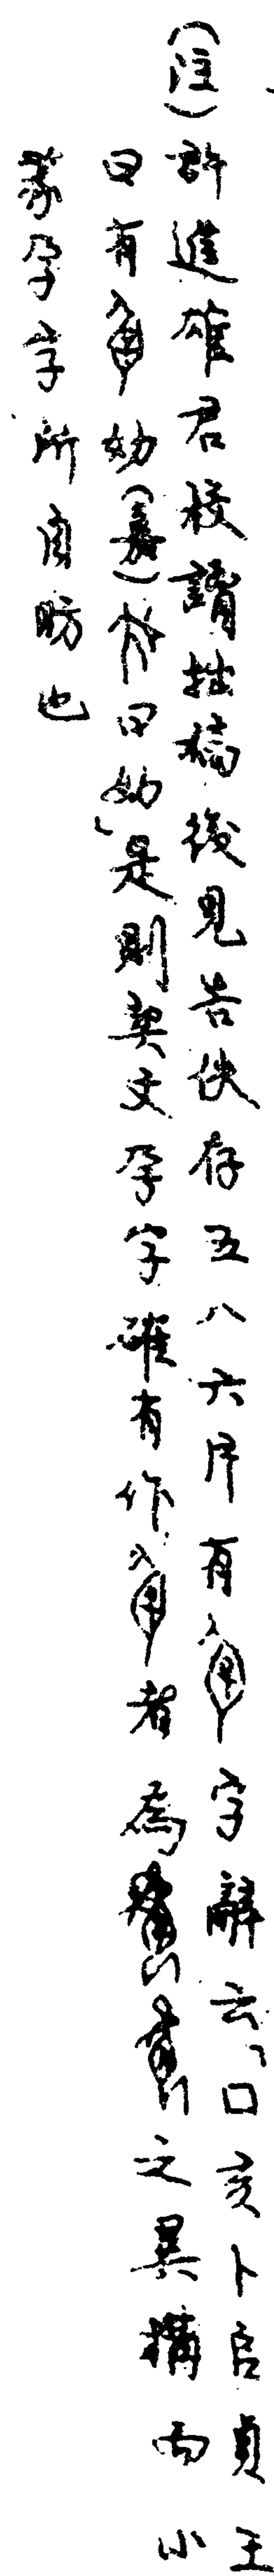 （註）許進雄君校讀拙稿後見告佚存五八六片有字辭云「口亥卜𠂤貞王
曰有妫（嘉）曰妫」是則契文孕字確有作者為之異構而小
篆孕字所自昉也